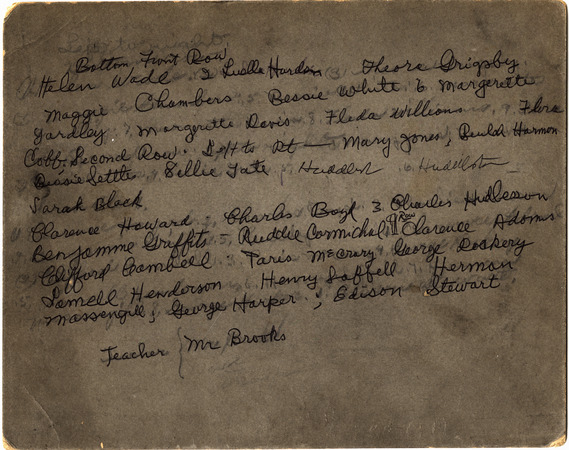 Bottom Front Row
Helen Wade 2 Luella Hardon Theora Grigsby
Maggie Chambers Bessie White 6 Margerette
Yardley 7 Margerette Davis Fleda Williams Flora
Cobb, Second Row. Left to Rt — Mary Jones, Beulah Harmon
Bessie Settle Sellie Tate Huddlest Huddleston
Sarah Black
Clarence Howard, Charles Boyd 3. Charles Hudleson
Benjamme Griffits - Ruddie Cormichal Row Clarence Adams
Clifford Gambell Paris McCrary George Dockery
Lomell Henderson Henry Saffell Herman
Massengill; George Harper; Edison Stewart
Teacher Mr Brooks